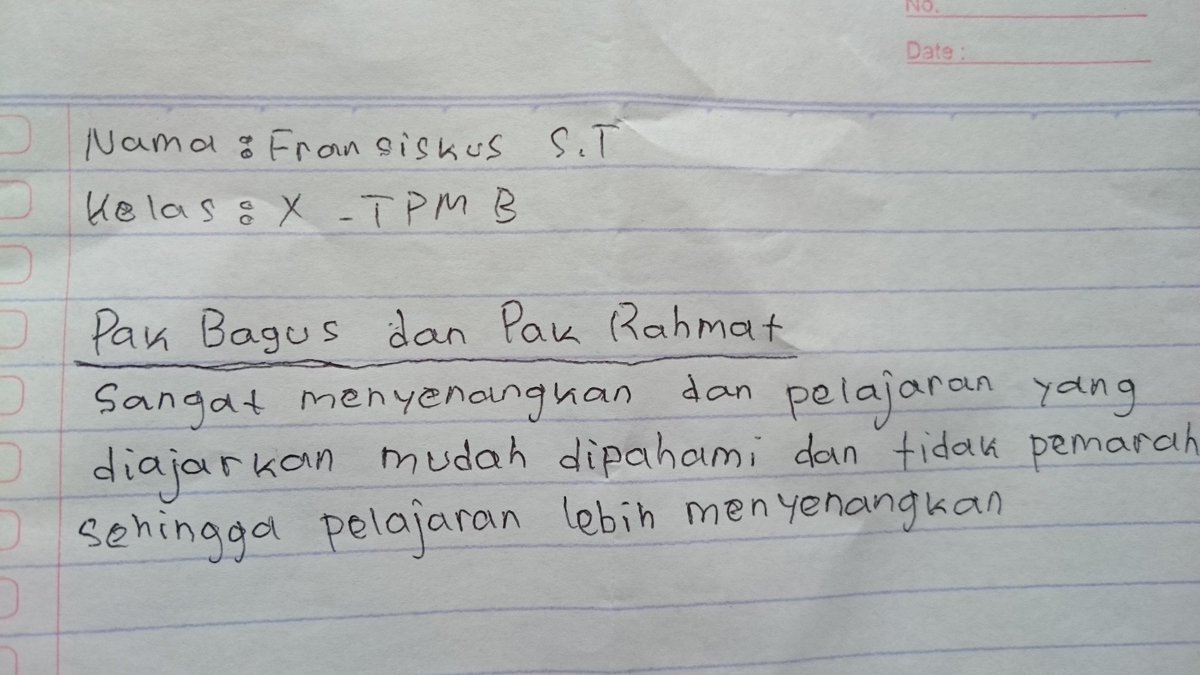 No.
Date :
Nama : Fransiskus S.T
Kelas : X - TPM B
Pak Bagus dan Pak Rahmat
Sangat menyenangkan dan pelajaran yang
diajarkan mudah dipahami dan tidak pemarah
sehingga pelajaran lebih menyenangkan